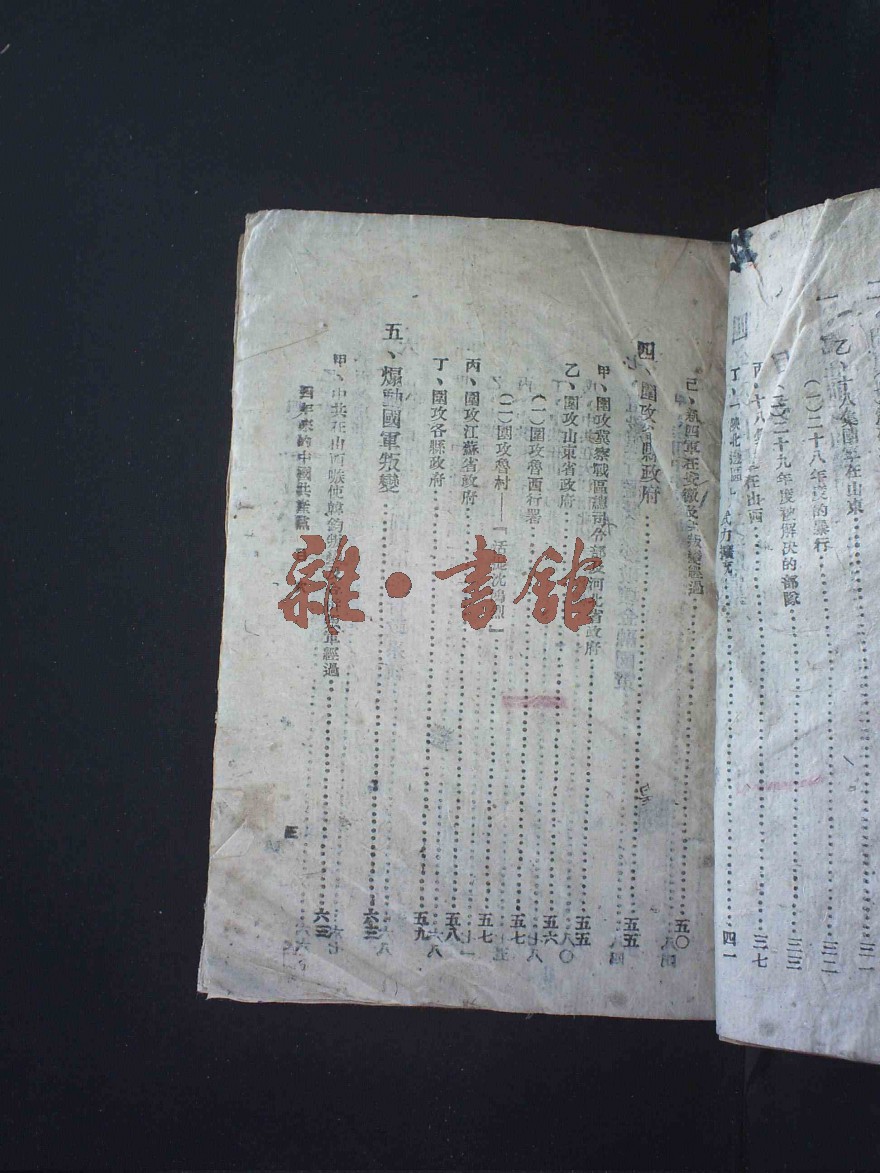 乙、十八集團軍在山東 三一
(一)二十八年度的暴行 三二
(二)二十九年度被解決的部隊 三三
丙、十八 在山西 三七
丁、「陝北邊區」武力擴充 四一
己、新四軍在安徽及 叛變經過 五〇
四、圍攻省縣政府 五五
甲、圍攻冀察戰區總司令部 河北省政府 五五
乙、圍攻山東省政府 五六
(一)圍攻魯西行署 五七
(二)圍攻魯村——「活捉沈鴻烈」 五七
丙、圍攻江蘇省政府 五八
丁、圍攻各縣政府 五九
五、煽動國軍叛變 六三
甲、中共在山西嗾使韓鈞 軍經過 六三
四年來的中國共產黨 三
雜·書館